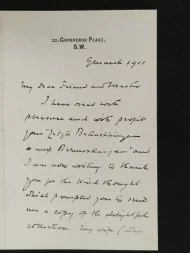 22, GROSVENOR PLACE.
S.W.
9 March 1911
My dear Friend and Master
I have read with
pleasure and with profit
your
and
I am now writing to thank
you for the kind thought
which prompted you to send
me a copy of the delightful
collection. My wife (who